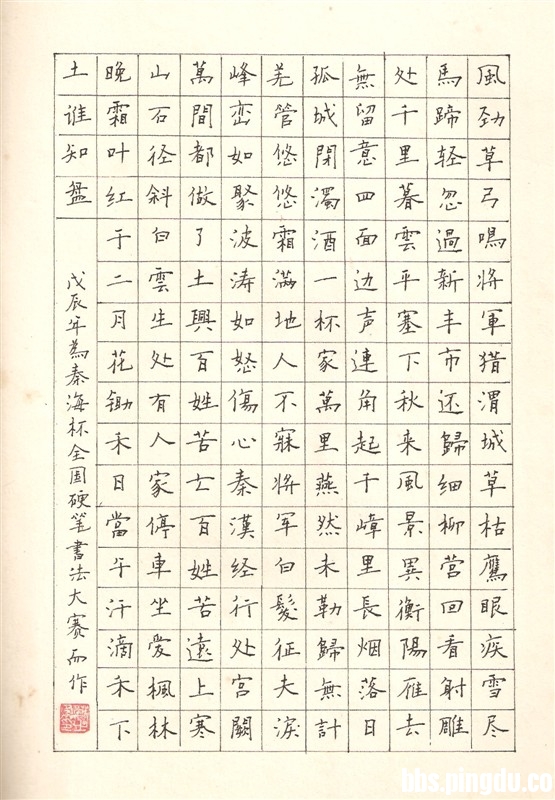 風劲草弓鳴將軍猎渭城草枯鷹眼疾雪尽
馬蹄轻忽過新丰市还歸细柳营回看射雕
处千里暮雲平塞下秋来風景異衡陽雁去
無留意四面边声連角起千嶂里長烟落日
孤城閉濁酒一杯家萬里燕然未勒歸無計
羌管悠悠霜滿地人不寐將军白髮征夫淚
峰峦如聚波涛如怒傷心秦漢经行处宫闕
萬間都做了土興百姓苦亡百姓苦遠上寒
山石径斜白雲生处有人家停車坐爱楓林
晚霜叶红于二月花锄禾日當午汗滴禾下
土谁知盤
戊辰年為秦海杯全国硬笔書法大赛而作
bbs.pingdu.co